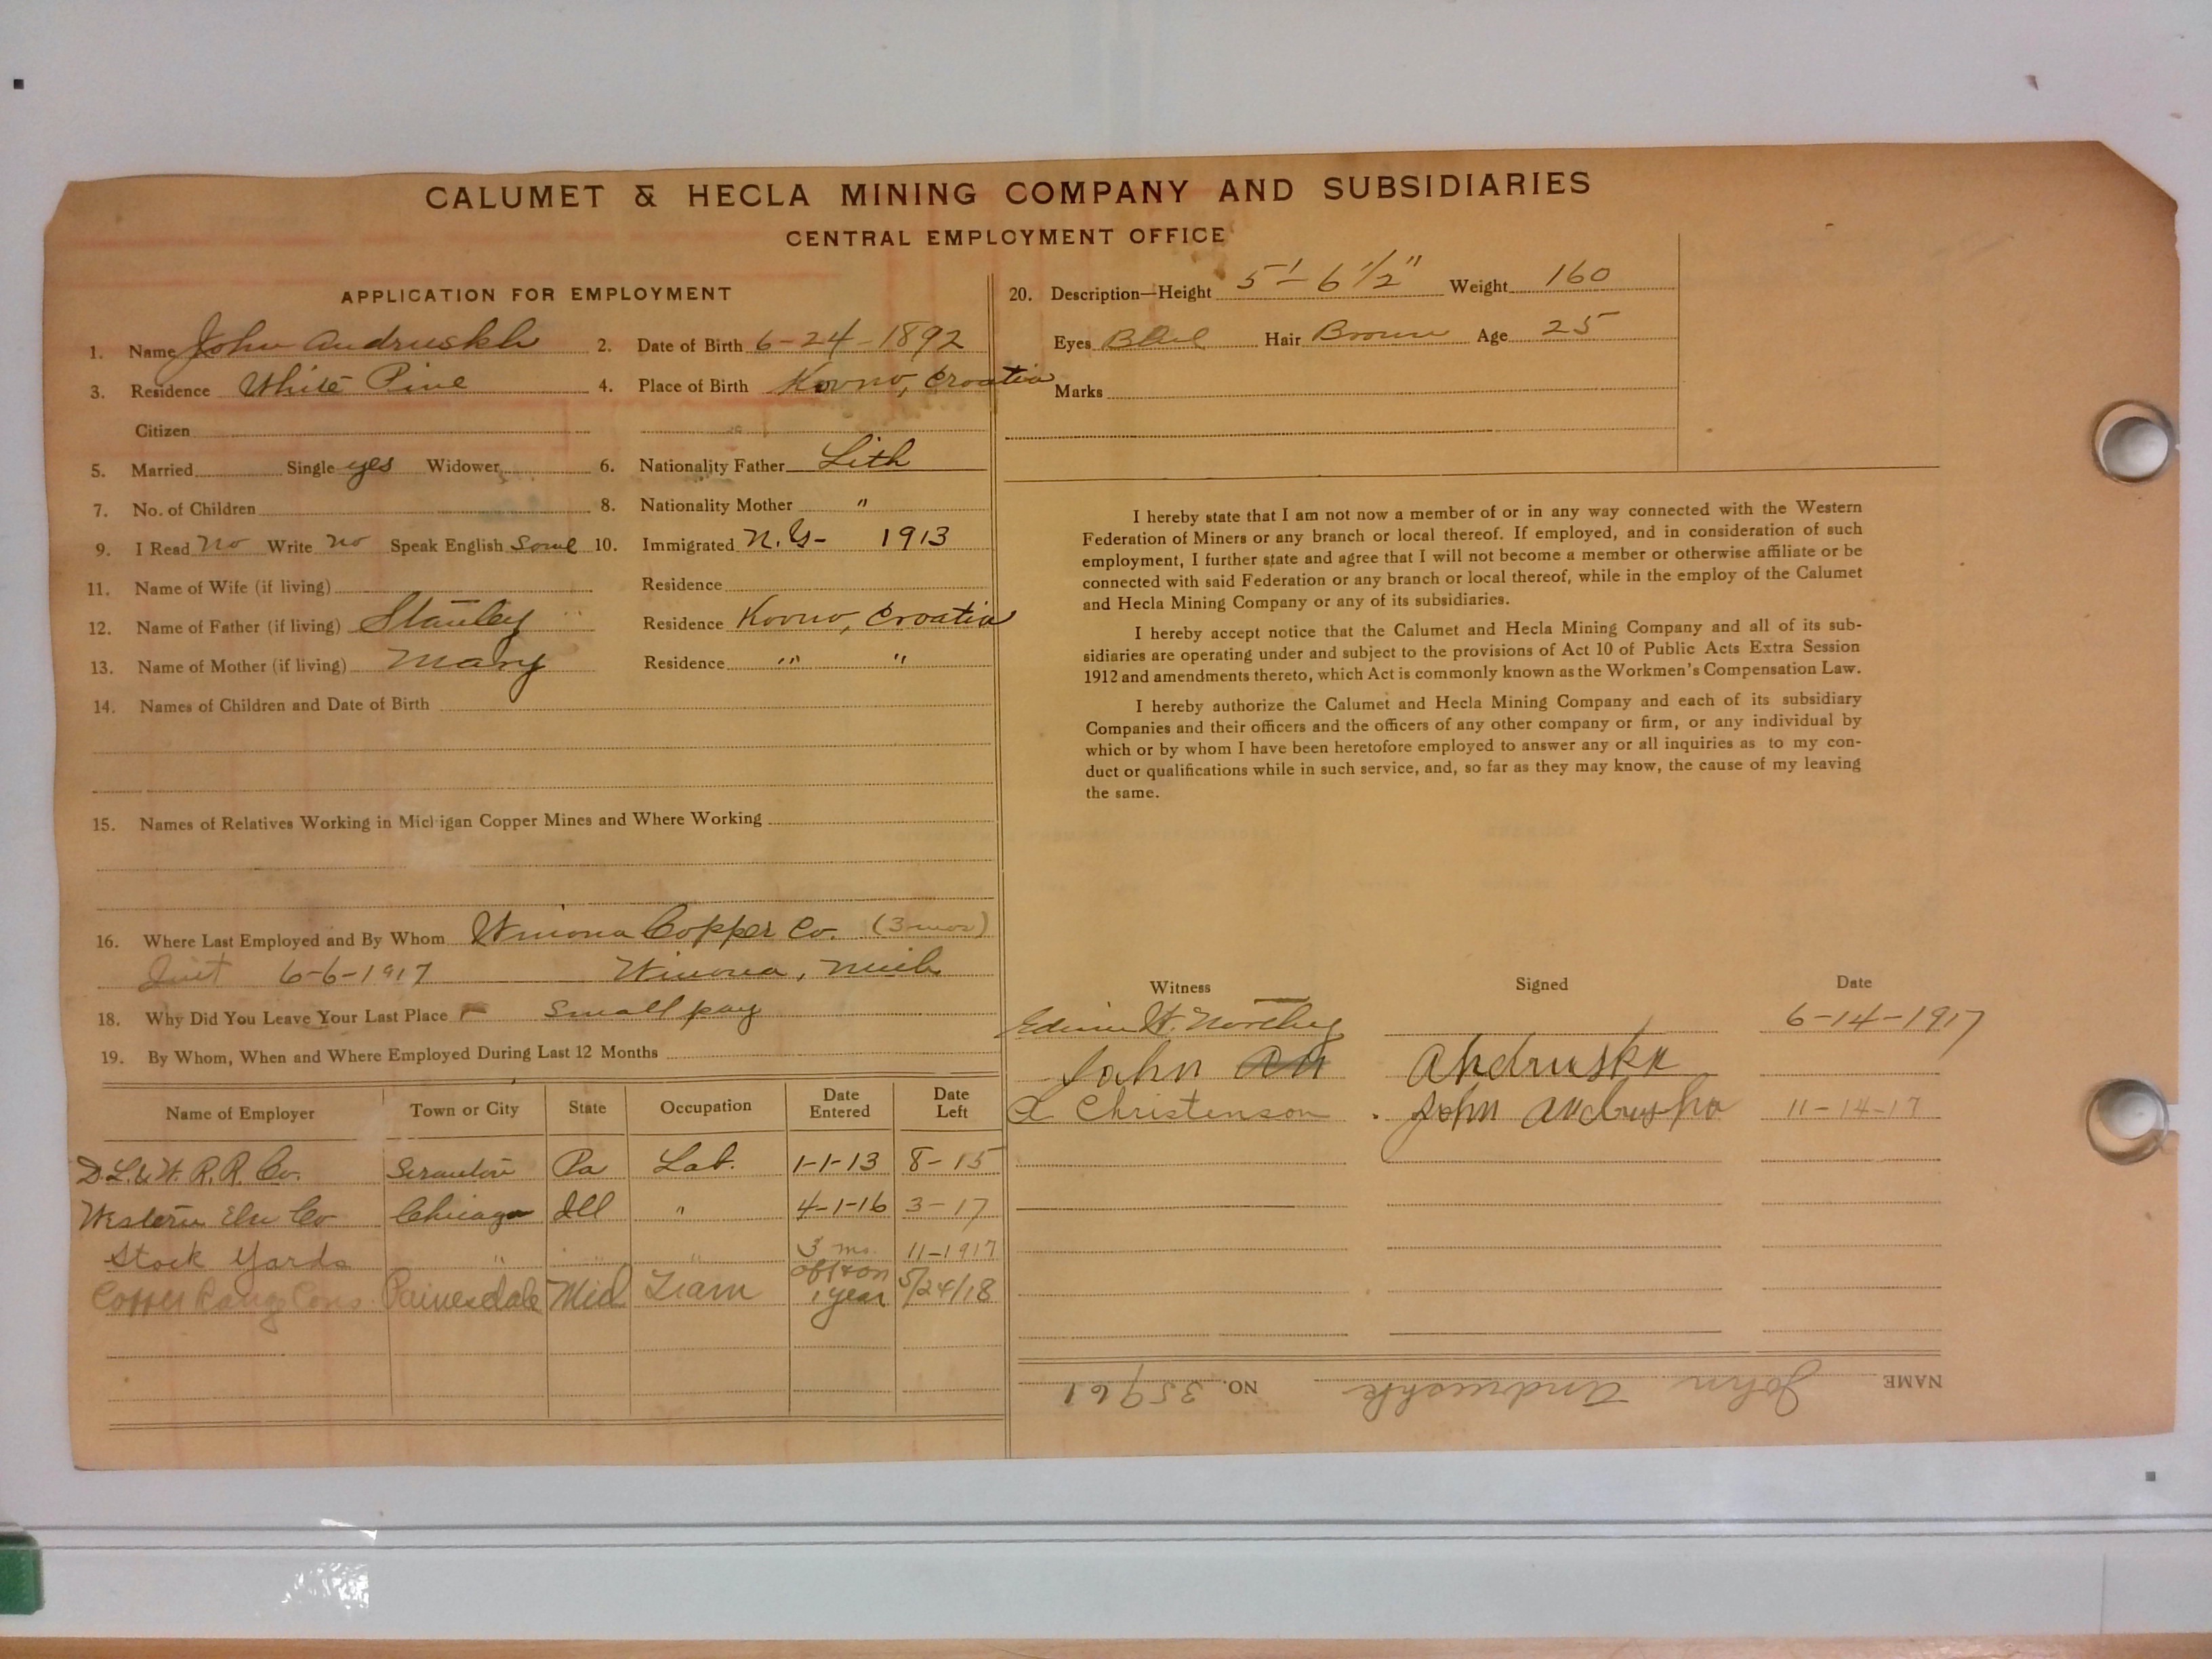 CALUMET & HECLA MINING COMPANY AND SUBSIDIARIES
CENTRAL EMPLOYMENT OFFICE
APPLICATION FOR EMPLOYMENT
1. Name John Andruskh 2. Date of Birth 6-24-1892
3. Residence White Pine 4. Place of Birth Kovno, Croatia
Citizen
5. Married Single yes Widower 6. Nationality Father Lith
7. No. of Children 8. Nationality Mother "
9. I Read no Write no Speak English Some 10. Immigrated N.Y- 1913
11. Name of Wife (if living) Residence
12. Name of Father (if living) Stanley Residence Kovno, Croatia
13. Name of Mother (if living) Mary Residence " "
14. Names of Children and Date of Birth
15. Names of Relatives Working in Michigan Copper Mines and Where Working
16. Where Last Employed and By Whom Winona Copper Co. (3 mos)
Quit 6-6-1917 Winona, Mich
18. Why Did You Leave Your Last Place Small pay
19. By Whom, When and Where Employed During Last 12 Months
Name of Employer Town or City State Occupation Date Entered Date Left
D.L.& W. R.R. Co. Scranton Pa Lab. 1-1-13 8-15
Western Elec Co Chicago Ill " 4-1-16 3-17
Stock Yards " " " 3 mo. 11-1917
Copper Range Cons Painesdale Mich Tram off & on 1 year 5/24/18
20. Description—Height 5'-6 1/2" Weight 160
Eyes Blue Hair Brown Age 25
Marks
I hereby state that I am not now a member of or in any way connected with the Western
Federation of Miners or any branch or local thereof. If employed, and in consideration of such
employment, I further state and agree that I will not become a member or otherwise affiliate or be
connected with said Federation or any branch or local thereof, while in the employ of the Calumet
and Hecla Mining Company or any of its subsidiaries.
I hereby accept notice that the Calumet and Hecla Mining Company and all of its sub-
sidiaries are operating under and subject to the provisions of Act 10 of Public Acts Extra Session
1912 and amendments thereto, which Act is commonly known as the Workmen's Compensation Law.
I hereby authorize the Calumet and Hecla Mining Company and each of its subsidiary
Companies and their officers and the officers of any other company or firm, or any individual by
which or by whom I have been heretofore employed to answer any or all inquiries as to my con-
duct or qualifications while in such service, and, so far as they may know, the cause of my leaving
the same.
Witness Signed Date
Edwin H. 6-14-1917
John Andruskh
L Christenson John Andrusha 11-14-17
NAME John Andruskh NO. 35961